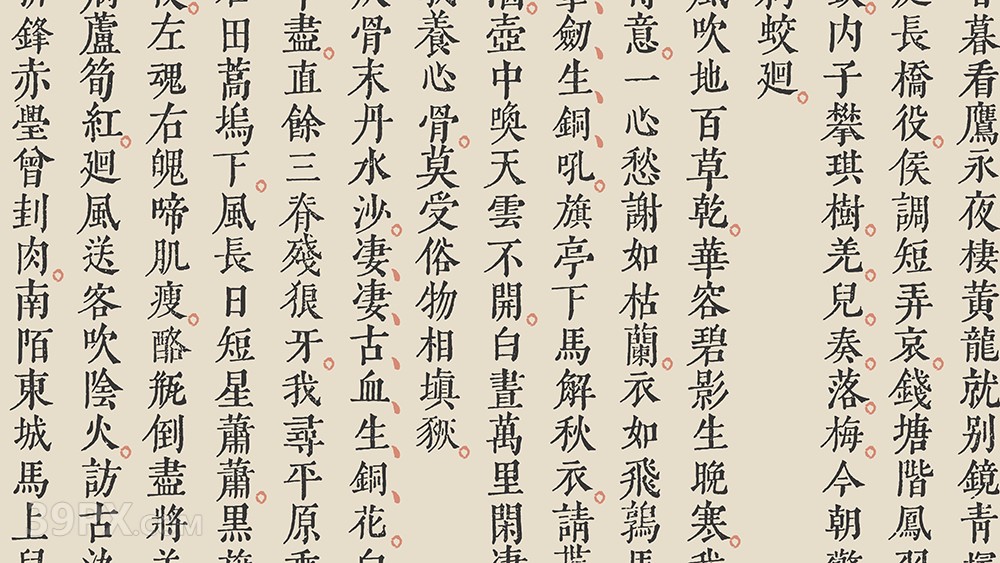 暮看鷹永夜棲黃龍就別鏡青
長橋役。侯調短弄哀。錢塘階鳳羽
内子攀琪樹。羌兒。奏落梅。今朝擎
蛟廻。
風吹地百草乾。華容碧影生晚寒。我
意。一心愁謝如枯蘭。衣如飛鶉馬
劒生銅吼。旗亭下馬解秋衣。請貰
酒壺中喚天雲不開。白晝萬里閑凄
我養心骨。莫受俗物相塡豗。
骨末丹水沙。凄凄古血生銅花。白
盡。直餘三脊殘狼牙。我尋平原乘
田蒿塢下。風長日短星蕭蕭。黑旗
左魂右魄啼肌瘦。酪瓶倒盡將羊
蘆筍紅。廻風送客吹陰火。訪古
鋒赤璺曾刲肉。南陌東城馬上兒
39PX.COM